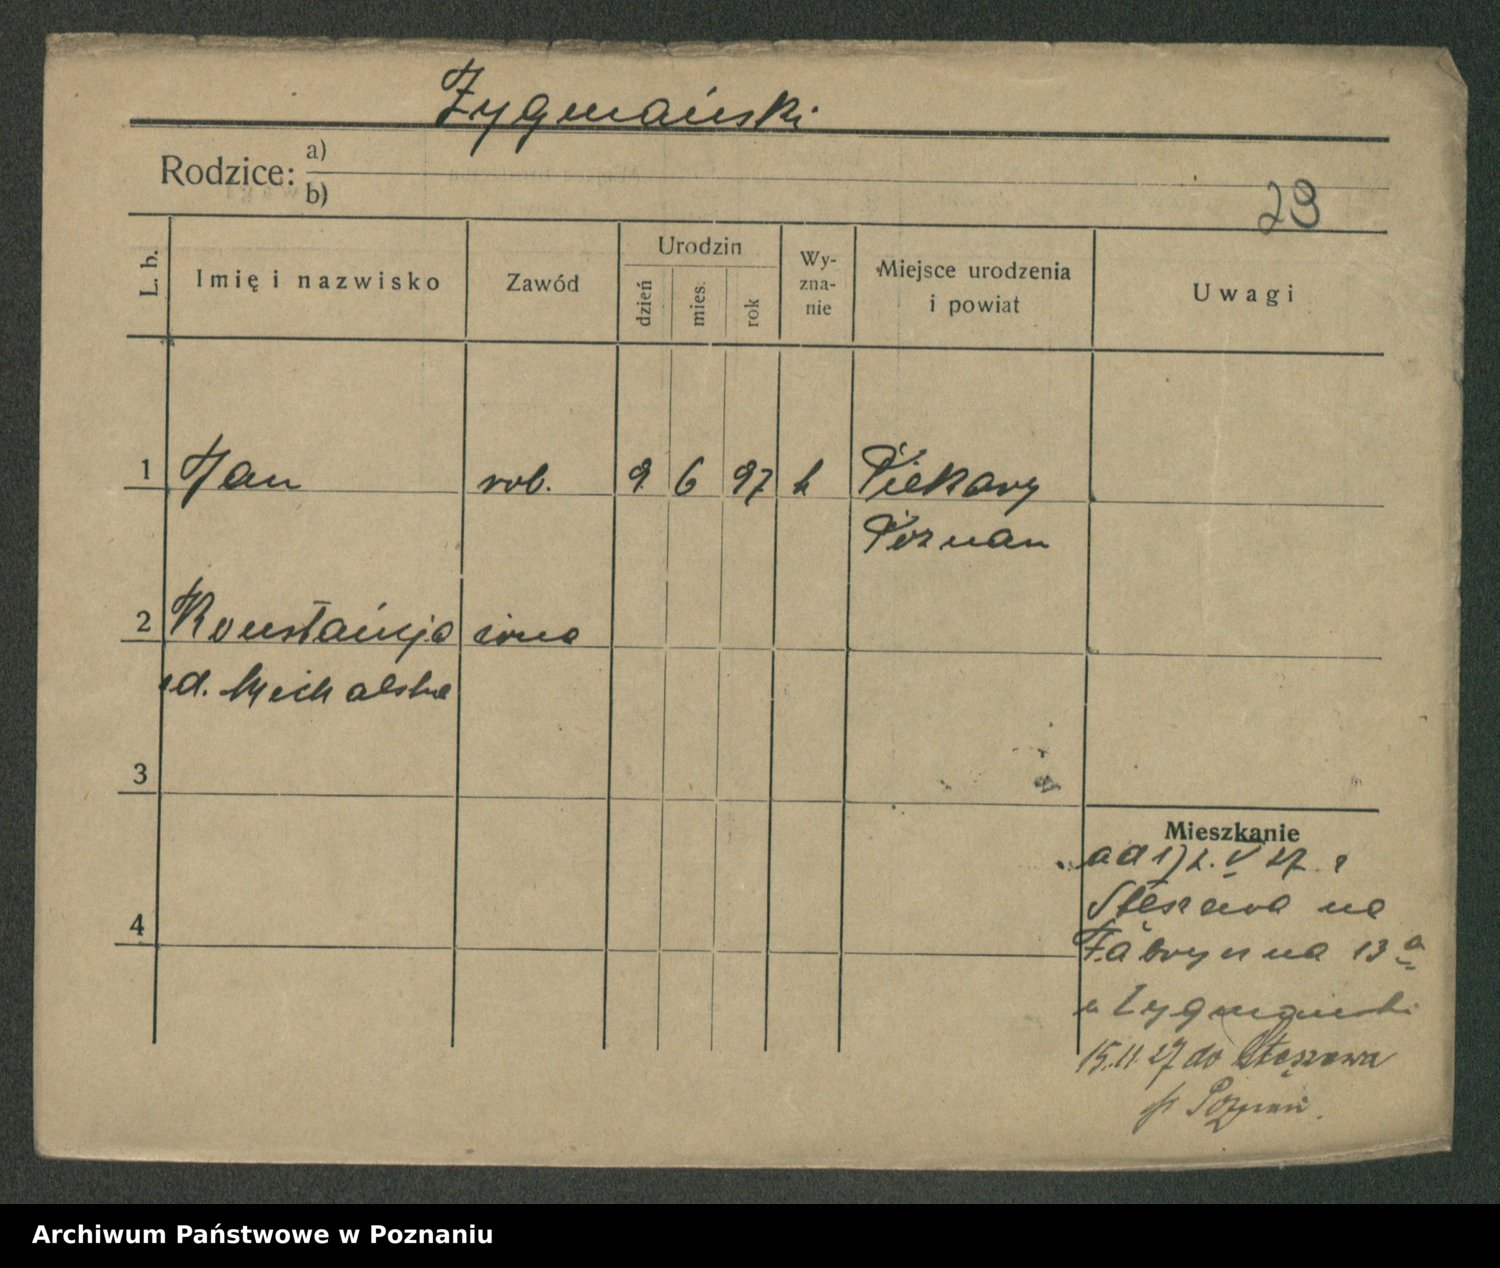 Zygmański
Rodzice: a)
b)
29
L. b.
Imię i nazwisko
Zawód
Urodzin
dzień
mies.
rok
Wy-
zna-
nie
Miejsce urodzenia
i powiat
Uwagi
1 Jan rob. 9. 6 97 k Piekary
Poznań
2 Konstancja żona
Michalska
3
4
Mieszkanie
ad 1) 2. V 27. z
Stęszewa na
Fabryczna 13 a
u Zygmański
15.11.27 do Stęszewa
p. Poznań.
Archiwum Państwowe w Poznaniu